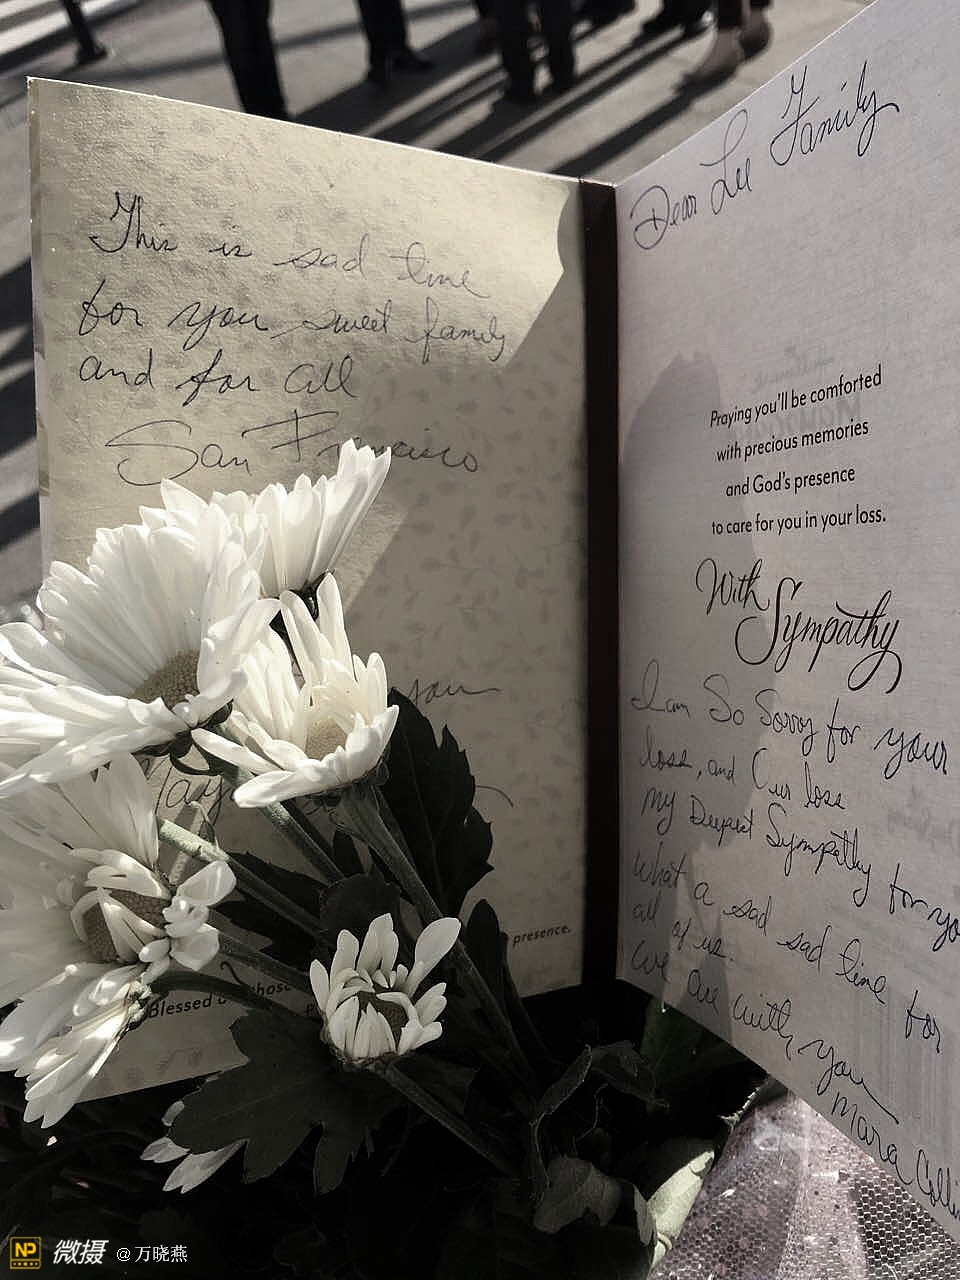 This is sad time
for you sweet family
and for all
San Francisco
you
presence.
Blessed
Dear Lee Family
Praying you'll be comforted
with precious memories
and God's presence
to care for you in your loss.
With
Sympathy
I am So Sorry for your
loss, and Our loss
My Deepest Sympathy for yo
What a sad sad time for
all of us.
We Are with you
Mara Colli
NP 微摄 @万晓燕